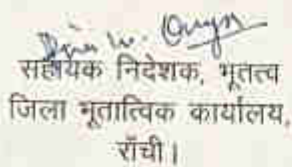 सहायक निदेशक, भूतत्व
जिला भूतात्विक कार्यालय,
राँची।